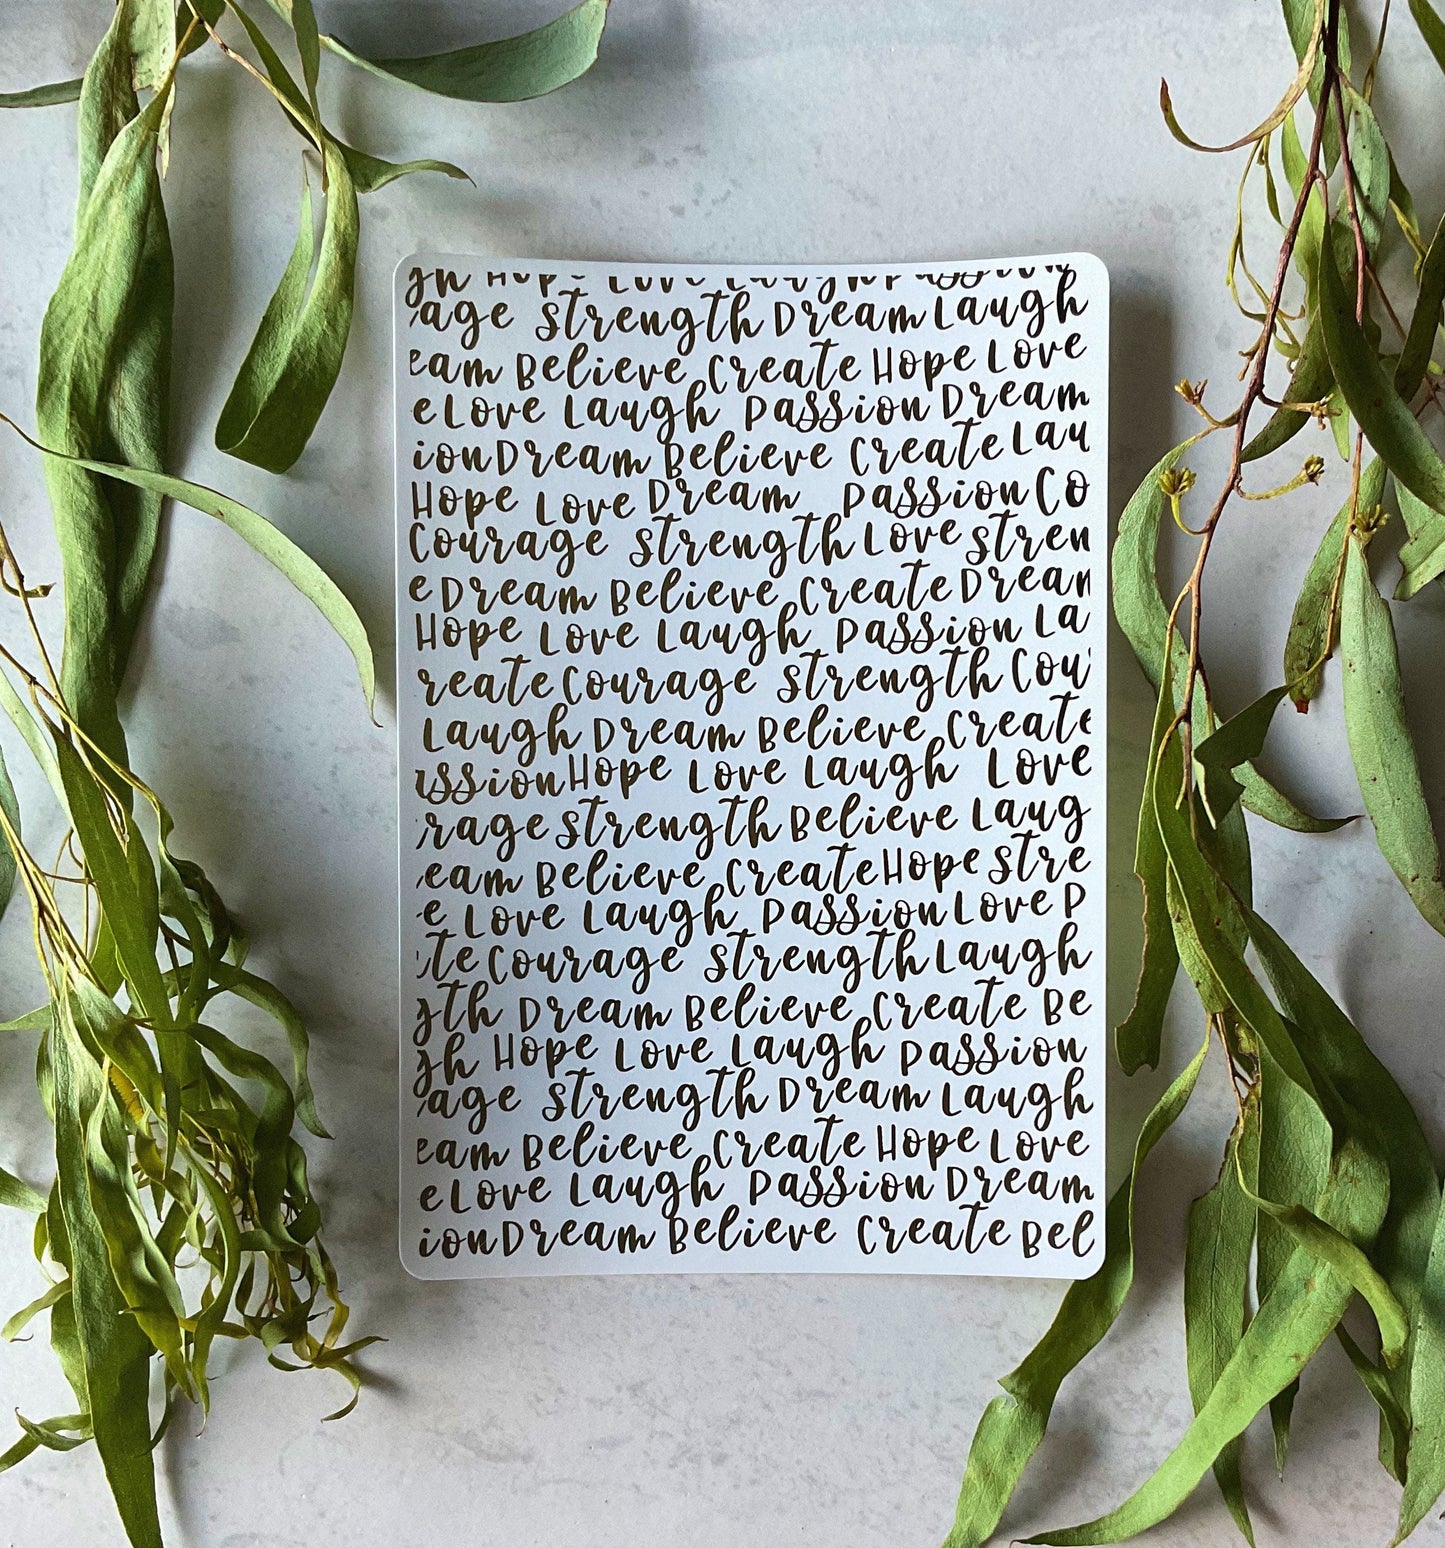 gh Hope Love Laugh Passion
age Strength Dream Laugh
eam Believe Create Hope Love
e Love Laugh Passion Dream
ion Dream Believe Create Lau
Hope Love Dream Passion Co
Courage Strength Love Stren
e Dream Believe Create Dream
Hope Love Laugh Passion La
reate Courage Strength Cou
Laugh Dream Believe Create
ssion Hope Love Laugh Love
rage Strength Believe Laug
eam Believe Create Hope Stre
e Love Laugh Passion Love P
te Courage Strength Laugh
gth Dream Believe Create Be
gh Hope Love Laugh Passion
age Strength Dream Laugh
eam Believe Create Hope Love
e Love Laugh Passion Dream
ion Dream Believe Create Bel